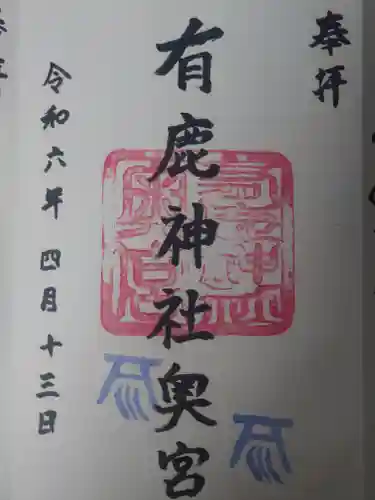 奉拝
有鹿神社奥宮
令和六年 四月十三日